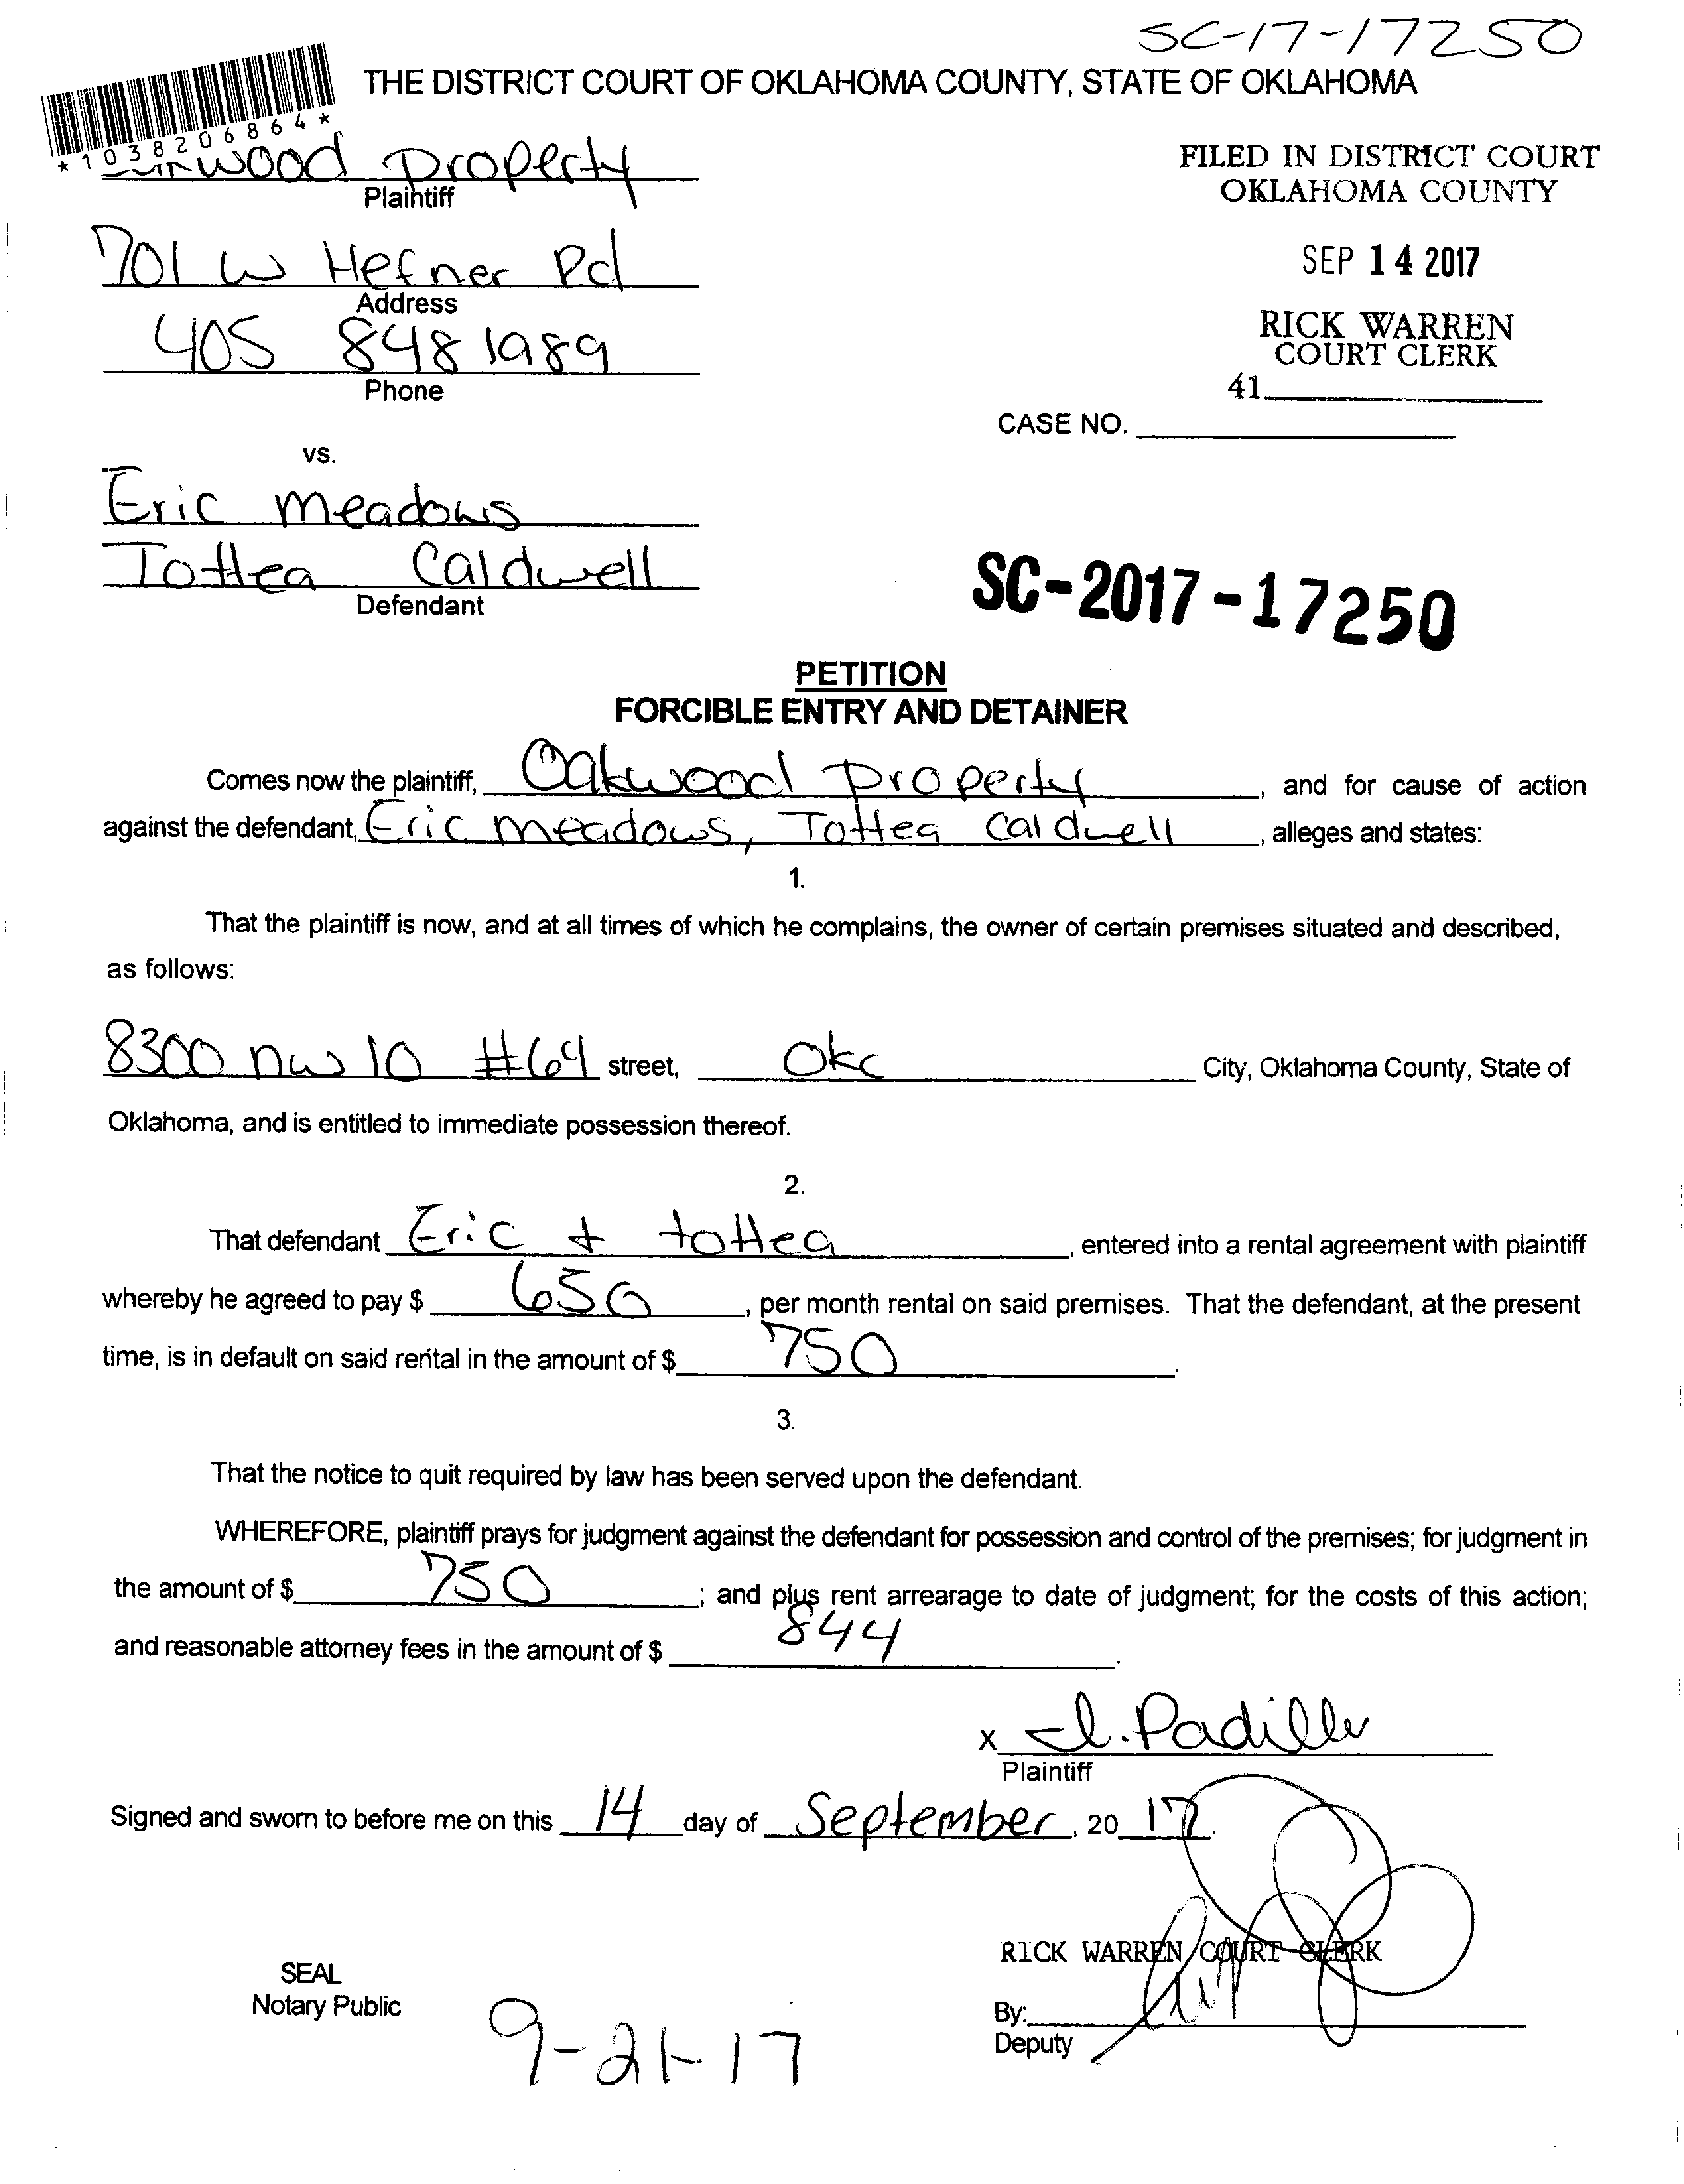 SC-17-17250
THE DISTRICT COURT OF OKLAHOMA COUNTY, STATE OF OKLAHOMA
*1038206864*
wood Property
Plaintiff
FILED IN DISTRICT COURT
OKLAHOMA COUNTY
701 W Hefner Rd
Address
SEP 14 2017
405 848 1989
Phone
RICK WARREN
COURT CLERK
41
CASE NO.
vs.
Eric meadows
Tottea Caldwell
Defendant
SC-2017-17250
PETITION
FORCIBLE ENTRY AND DETAINER
Comes now the plaintiff, Oakwood Property, and for cause of action
against the defendant, Eric meadows, Tottea Caldwell, alleges and states:
1.
That the plaintiff is now, and at all times of which he complains, the owner of certain premises situated and described,
as follows:
8300 nw 10 #64 street, Okc City, Oklahoma County, State of
Oklahoma, and is entitled to immediate possession thereof.
2.
That defendant Eric + tottea, entered into a rental agreement with plaintiff
whereby he agreed to pay $ 650, per month rental on said premises. That the defendant, at the present
time, is in default on said rental in the amount of $ 750.
3.
That the notice to quit required by law has been served upon the defendant.
WHEREFORE, plaintiff prays for judgment against the defendant for possession and control of the premises; for judgment in
the amount of $ 750; and plus rent arrearage to date of judgment; for the costs of this action;
and reasonable attorney fees in the amount of $ 844.
x I. Padilla
Plaintiff
Signed and sworn to before me on this 14 day of September, 20 17.
RICK WARREN COURT CLERK
SEAL
Notary Public
By:
Deputy
9-21-17